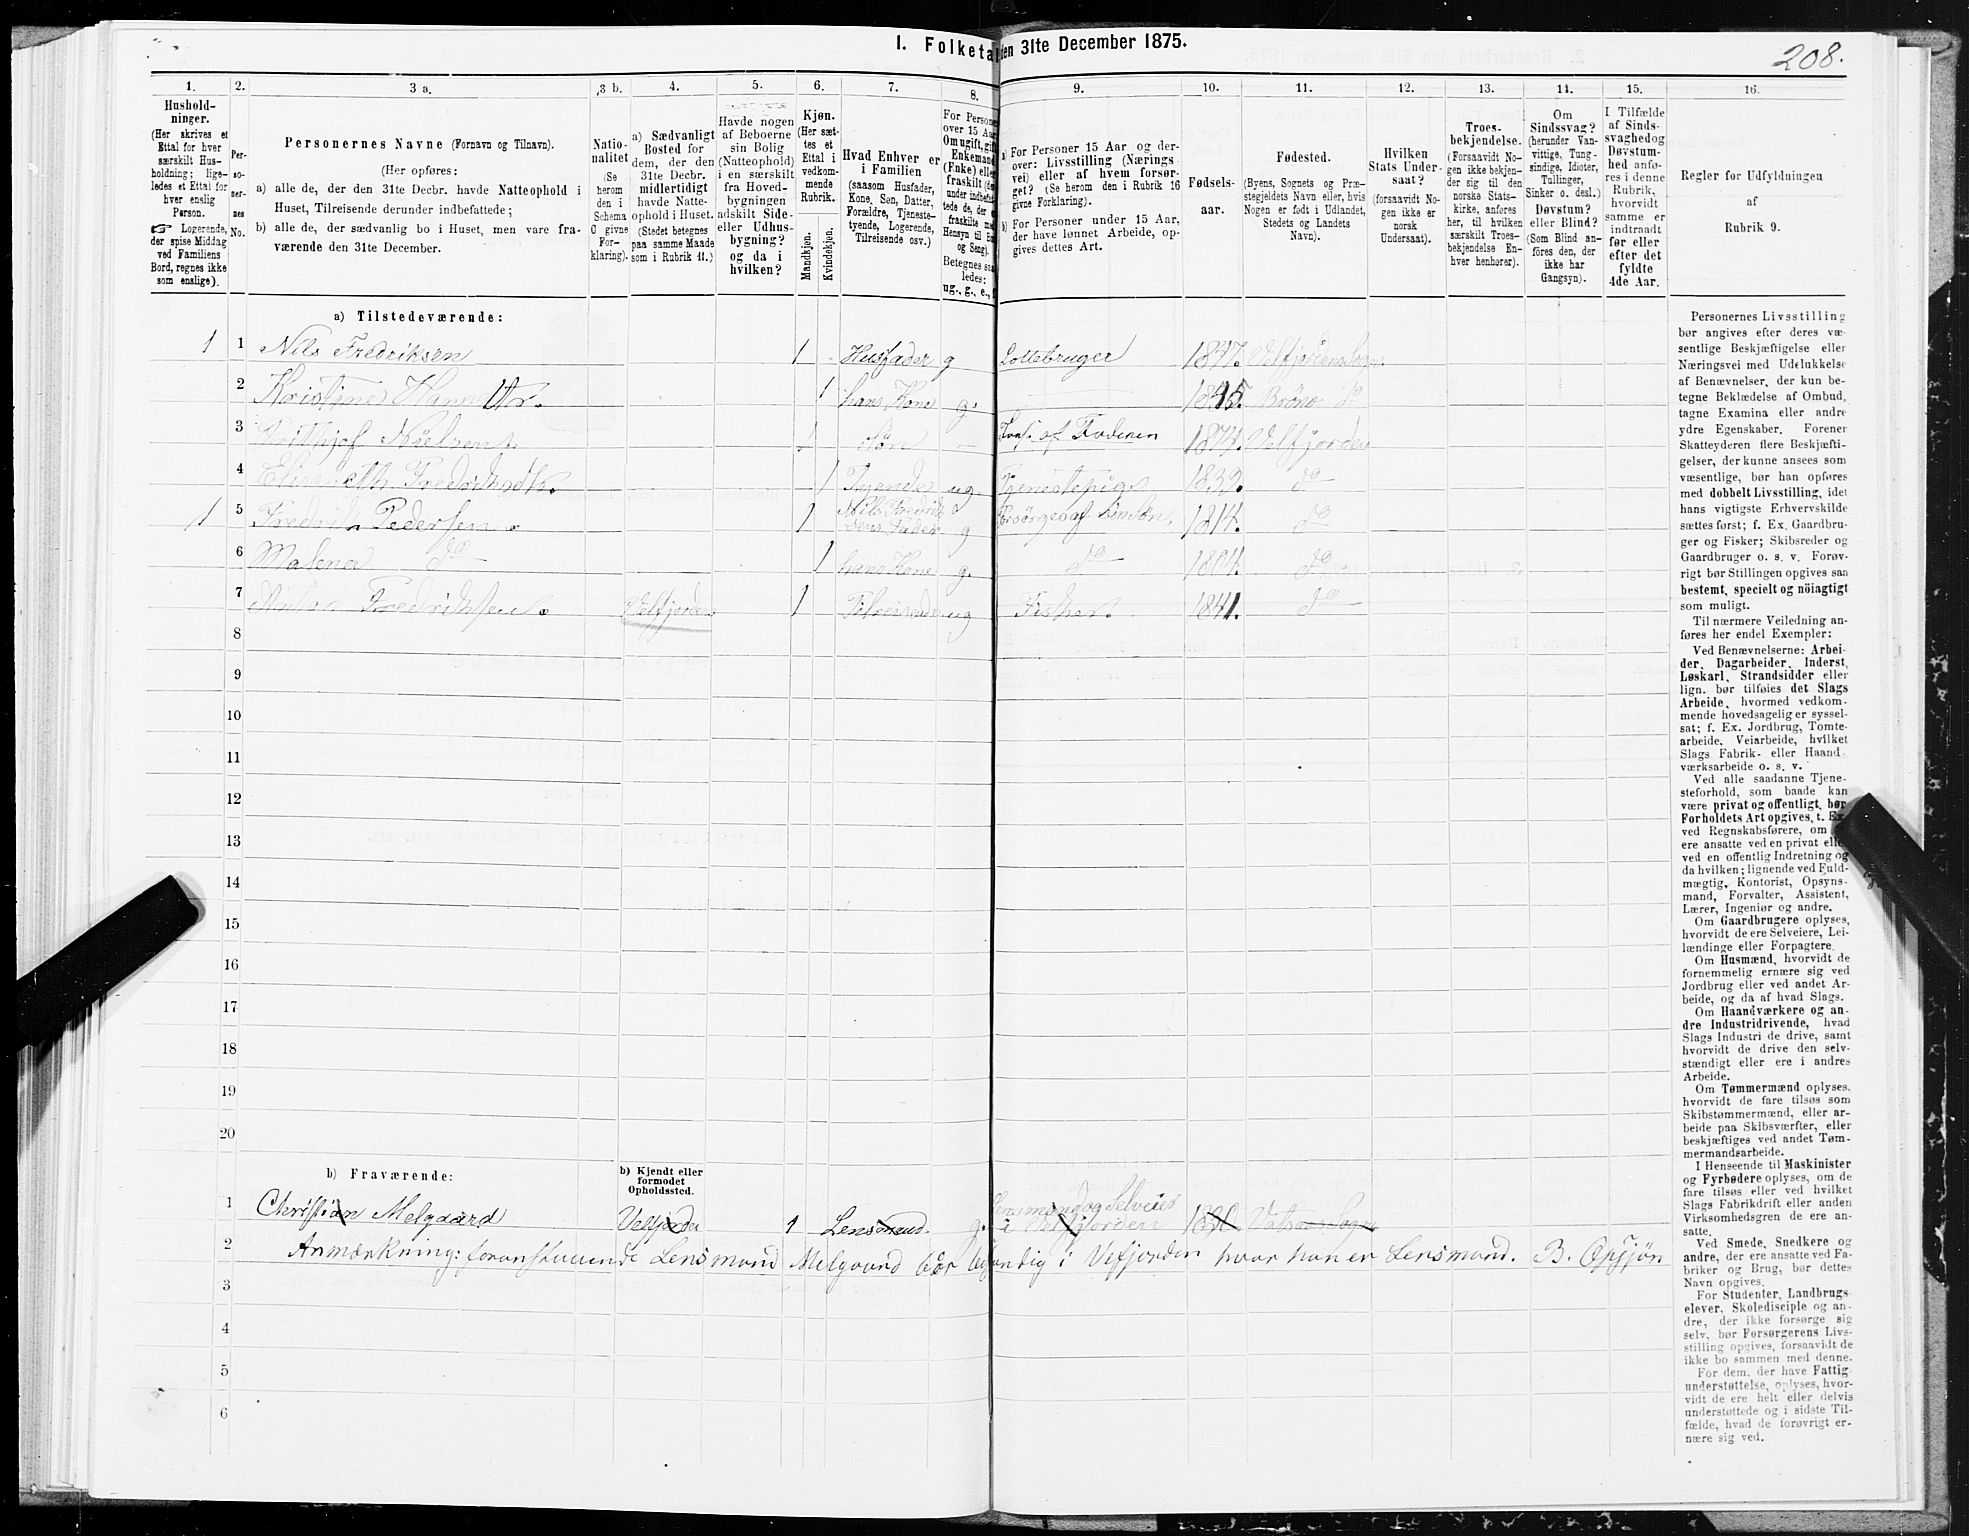 I. Folketal den 31te December 1875.
208.
1.
2.
3 a.
3 b.
4.
5.
6.
7.
8.
9.
10.
11.
12.
13.
14.
15.
16.
Hushold-
ninger.
(Her skrives et
Ettal for hver
særskilt Hus-
holdning; lige-
ledes et Ettal for
hver enslig
Person.
☞ Logerende,
der spise Middag
ved Familiens
Bord, regnes ikke
som enslige).
Per-
so-
ner-
nes
No.
Personernes Navne (Fornavn og Tilnavn).
(Her opføres:
a) alle de, der den 31te Decbr. havde Natteophold i
Huset, Tilreisende derunder indbefattede;
b) alle de, der sædvanlig bo i Huset, men vare fra-
værende den 31te December.
Natio-
nalitet
(Se
herom
den i
Schema
C givne
For-
klaring).
a) Sædvanligt
Bosted for
dem, der den
31te Decbr.
midlertidigt
havde Natte-
ophold i Huset.
(Stedet betegnes
paa samme Maade
som i Rubrik 11.)
Havde nogen
af Beboerne
sin Bolig
(Natteophold)
i en særskilt
fra Hoved-
bygningen
adskilt Side-
eller Udhus-
bygning?
og da i
hvilken?
Kjøn.
(Her sæt-
tes et
Ettal i
vedkom-
mende
Rubrik.
Mandkjøn.
Kvindekjøn.
Hvad Enhver er
i Familien
(saasom Husfader,
Kone, Søn, Datter,
Forældre, Tjeneste-
tyende, Logerende,
Tilreisende osv.)
For Personer
over 15 Aar:
Om ugift, gift,
Enkemand
(Enke) eller
fraskilt
under indbefat-
tede de, der
fraskilte med
Hensyn til Bord
og Seng).
Betegnes saa-
ledes:
ug., g., e., f.
a) For Personer 15 Aar og der-
over: Livsstilling (Nærings
vei) eller af hvem forsør-
get? (Se herom den i Rubrik 16
givne Forklaring).
b) For Personer under 15 Aar,
der have lønnet Arbeide, op-
gives dettes Art.
Fødsels-
aar.
Fødested.
(Byens, Sognets og Præ-
stegjeldets Navn eller, hvis
Nogen er født i Udlandet,
Stedets og Landets
Navn).
Hvilken
Stats Under-
saat?
(forsaavidt No-
gen ikke er
norsk
Undersaat).
Troes-
bekjendelse.
(Forsaavidt No-
gen ikke bekjen-
der sig til den
norske Stats-
kirke, anføres
her, til hvilken
særskilt Troes-
bekjendelse En-
hver henhører).
Om
Sindssvag?
(herunder Van-
vittige, Tung-
sindige, Idioter,
Tullinger,
Sinker o. desl.)
Døvstum?
eller Blind?
(Som Blind an-
føres den, der
ikke har
Gangsyn).
I Tilfælde
af Sinds-
svaghed og
Døvstum-
hed anfø-
res i denne
Rubrik,
hvorvidt
samme er
indtraadt
før eller
efter det
fyldte
4de Aar.
Regler for Udfyldningen
af
Rubrik 9.
a) Tilstedeværende:
1 1 Nils Fredriksen 1 Husfader g 1847.
2 Kristine 1 hans Kone g. 1845. Brønø do
3 Nielsen 1 Søn – af Faderen 1874. Velfjorden
4 1 ug. Tjenestepige 1839. do
1 5 Pedersen 1 Nils Fredrik-
sens Fader g Forsørges af 1814. do
6 do 1 hans Kone g. do 1804. do
7 Fredriksen Velfjorden 1 Tilreisende ug Fisker. 1841. do
8
9
10
11
12
13
14
15
16
17
18
19
20
b) Fraværende:
b) Kjendt eller
formodet
Opholdssted.
1 Christian Melgaard Velfjorden 1 Lensmand. g. Lensmand og Selveier
i Velfjorden
2 Anmærkning: foranstaaende Lensmand Melgaard bor i Vefjorden hvor han er Lensmand. B.
3
4
5
6
Personernes Livsstilling
bør angives efter deres væ-
sentlige Beskjæftigelse eller
Næringsvei med Udelukkelse
af Benævnelser, der kun be-
tegne Beklædelse af Ombud,
tagne Examina eller andre
ydre Egenskaber. Forener
Skatteyderen flere Beskjæfti-
gelser, der kunne ansees som
væsentlige, bør han opføres
med dobbelt Livsstilling, idet
hans vigtigste Erhvervskilde
sættes først; f. Ex. Gaardbru-
ger og Fisker; Skibsreder og
Gaardbruger o. s. v. Forøv-
rigt bør Stillingen opgives saa
bestemt, specielt og nöiagtigt
som muligt.
Til nærmere Veiledning an-
føres her endel Exempler:
Ved Benævnelserne: Arbei-
der, Dagarbeider, Inderst,
Løskarl, Strandsidder eller
lign. bør tilføies det Slags
Arbeide, hvormed vedkom-
mende hovedsagelig er syssel-
sat; f. Ex. Jordbrug, Tomte-
arbeide, Veiarbeide, hvilket
Slags Fabrik- eller Haand-
værksarbeide o. s. v.
Ved alle saadanne Tjene-
steforhold, som baade kan
være privat og offentligt, bør
Forholdets Art opgives, t. Ex.
ved Regnskabsførere, om
ere ansatte ved en privat eller
ved en offentlig Indretning og
da hvilken; lignende ved Fuld-
mægtig, Kontorist, Opsyns-
mand, Forvalter, Assistent,
Lærer, Ingeniør og andre.
Om Gaardbrugere oplyses,
hvorvidt de ere Selveiere, Lei-
lændinge eller Forpagtere.
Om Husmænd, hvorvidt de
fornemmelig ernære sig ved
Jordbrug eller ved andet Ar-
beide, og da af hvad Slags.
Om Haandværkere og an-
dre Industridrivende, hvad
Slags Industri de drive, samt
hvorvidt de drive den selv-
stændigt eller ere i andres
Arbeide.
Om Tømmermænd oplyses,
hvorvidt de fare tilsøs som
Skibstømmermænd, eller ar-
beide paa Skibsværfter, eller
beskjæftiges ved andet Tøm-
mermandsarbeide.
I Henseende til Maskinister
og Fyrbødere oplyses, om de
fare tilsøs eller ved hvilket
Slags Fabrikdrift eller anden
Virksomhedsgren de ere an-
satte.
Ved Smede, Snedkere og
andre, der ere ansatte ved Fa-
briker og Brug, bør dettes
Navn opgives.
For Studenter, Landbrugs-
elever, Skoledisciple og an-
dre, der ikke forsørge sig
selv, bør Forsørgerens Livs-
stilling opgives, forsaavidt de
ikke bo sammen med denne.
For dem, der have Fattig
understøttelse, oplyses, hvor-
vidt de ere helt eller delvis
understøttede og i sidste Til-
fælde, hvad de forøvrigt er-
nære sig ved.